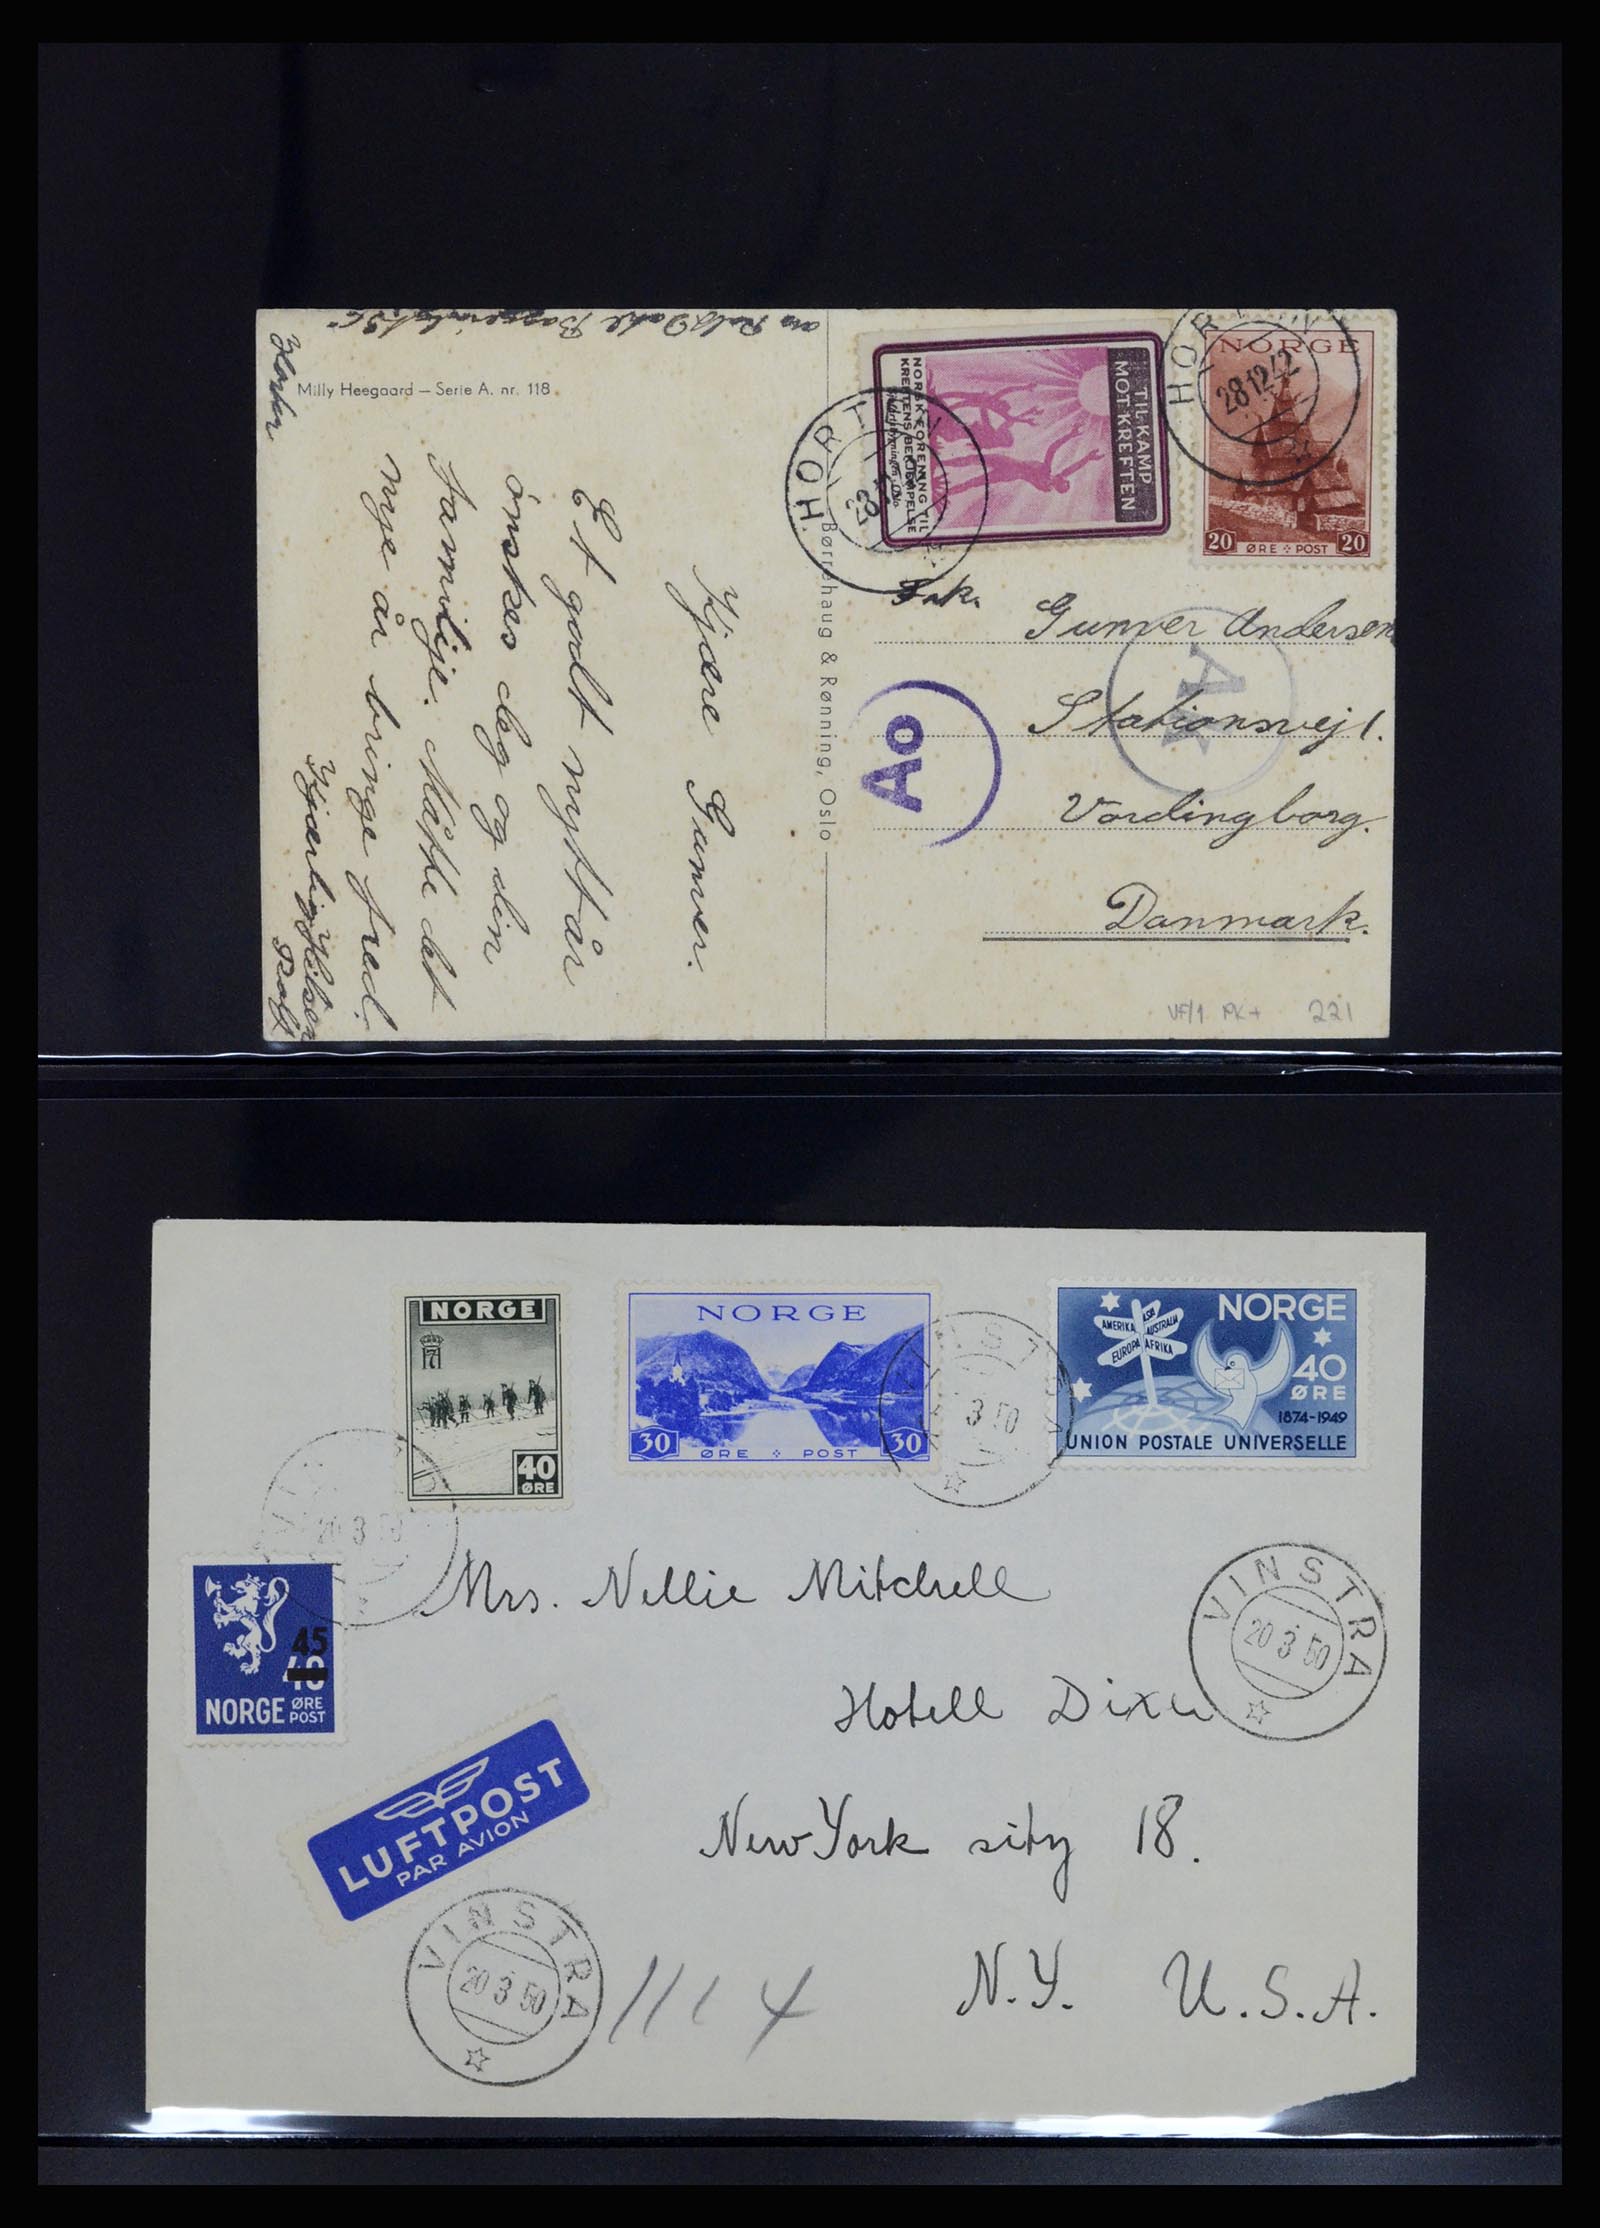 Milly Heegaard — Serie A. nr. 118
Horten
Kjære Gunver.
Et godt nytt år
ønskes deg og din
familje. Måtte det
nye år bringe fred.
Kjærlig Hilsen
Rolf
Børrehaug & Rønning, Oslo
TIL KAMP
MOT KREFTEN
NORSK FORENING TIL
KREFTENS BEKJEMPELSE
HORTEN
28 12 42
NORGE
20 ØRE POST 20
HORTEN
Frk.
Gunver Andersen
Stationsvej 1.
Vordingborg.
Danmark.
Ao
A
VF/1 PK+ 221
NORGE
40
ØRE
NORGE
30 ØRE POST 30
NORGE
40
ØRE
1874-1949
UNION POSTALE UNIVERSELLE
AMERIKA
ASIA
AUSTRALIA
EUROPA
AFRIKA
VINSTRA
20 3 50
VINSTRA
3 50
45
40
NORGE ØRE
POST
Mrs. Nellie Mitchell
Hotell Dixie
New York sity 18.
N.Y. U.S.A.
VINSTRA
20 3 50
LUFTPOST
PAR AVION
VINSTRA
20 3 50